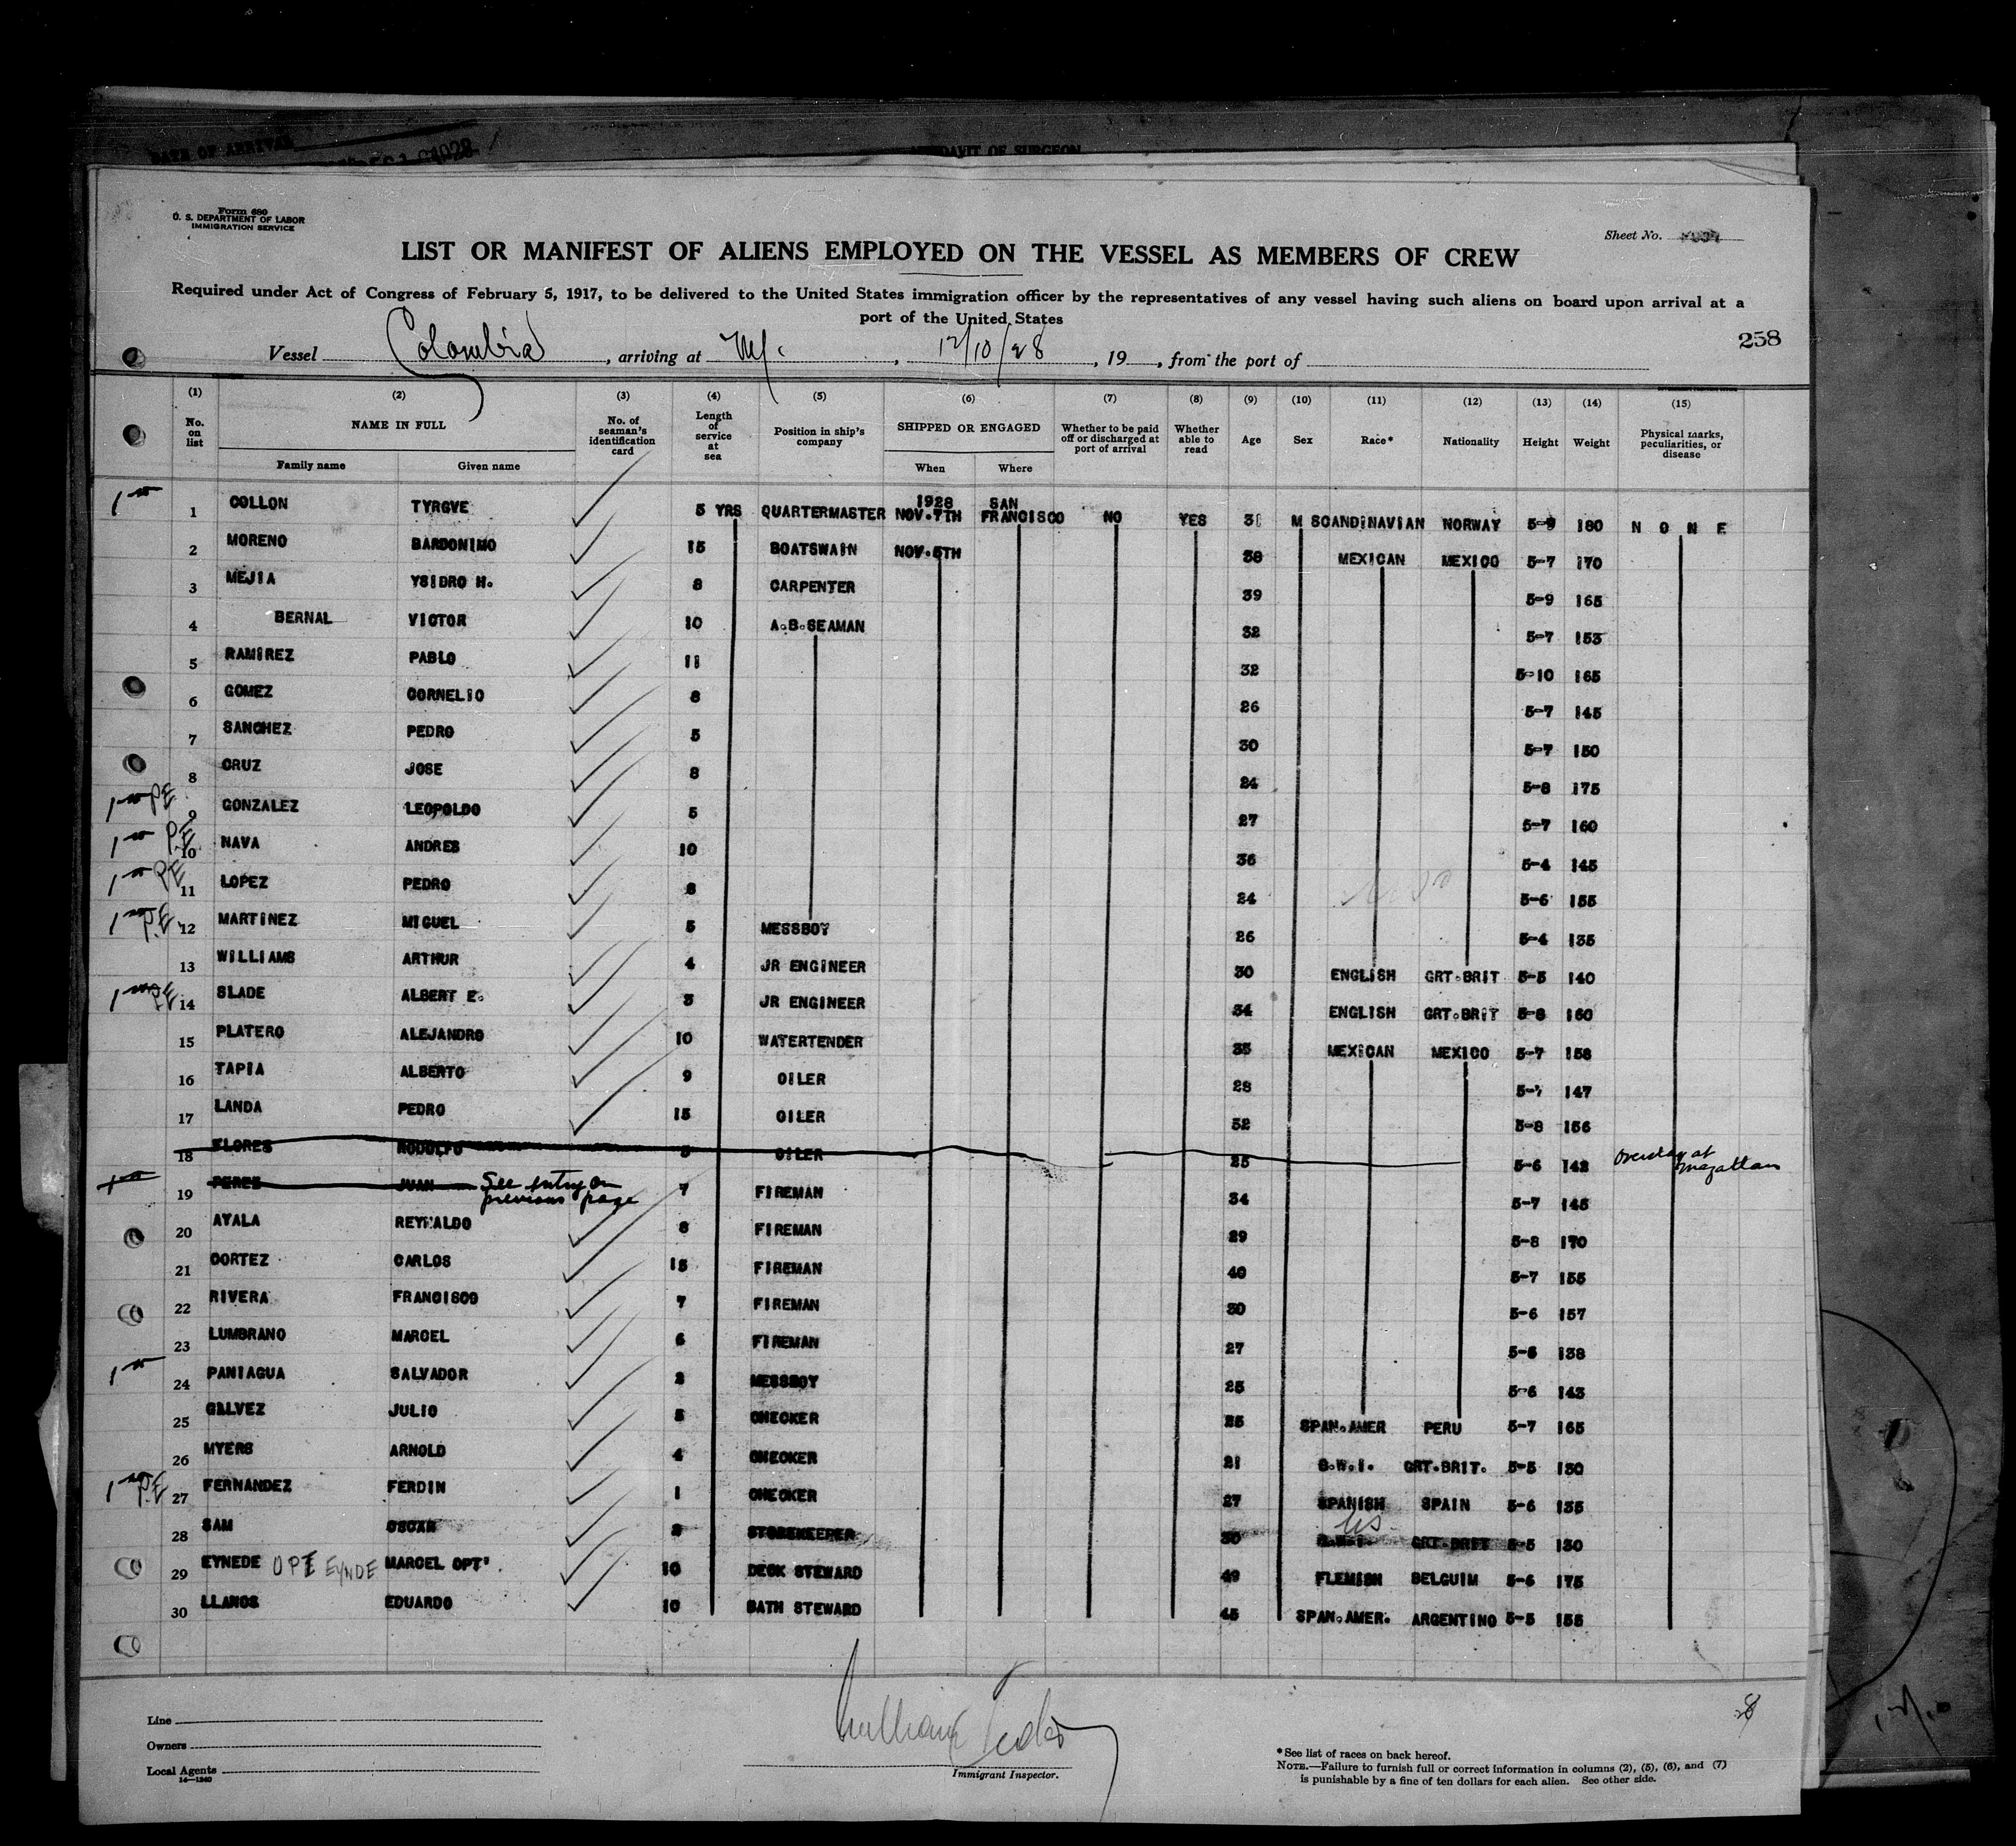 DATE OF ARRIVAL
DEC 10 1928
AFFIDAVIT OF SURGEON
Form 680
U. S. DEPARTMENT OF LABOR
IMMIGRATION SERVICE
Sheet No.
LIST OR MANIFEST OF ALIENS EMPLOYED ON THE VESSEL AS MEMBERS OF CREW
Required under Act of Congress of February 5, 1917, to be delivered to the United States immigration officer by the representatives of any vessel having such aliens on board upon arrival at a
port of the United States
258
Vessel Colombia, arriving at NY., 12/10/28, 19, from the port of
(1) (2) (3) (4) (5) (6) (7) (8) (9) (10) (11) (12) (13) (14) (15)
No. on list NAME IN FULL No. of seaman's identification card Length of service at sea Position in ship's company SHIPPED OR ENGAGED Whether to be paid off or discharged at port of arrival Whether able to read Age Sex Race* Nationality Height Weight Physical marks, peculiarities, or disease
Family name Given name When Where
1 COLLON TYRGVE 5 YRS QUARTERMASTER 1928 NOV.7TH SAN FRANCISCO NO YES 38 M SCANDINAVIAN NORWAY 5-9 180 N O N E
2 MORENO BARDONIMO 15 BOATSWAIN NOV.5TH 38 MEXICAN MEXICO 5-7 170
3 MEJIA YSIDRO H. 8 CARPENTER 39 5-9 165
4 BERNAL VICTOR 10 A.B.SEAMAN 32 5-7 153
5 RAMIREZ PABLO 11 32 5-10 165
6 GOMEZ CORNELIO 8 26 5-7 145
7 SANCHEZ PEDRO 5 30 5-7 150
8 CRUZ JOSE 8 24 5-8 175
PE 9 GONZALEZ LEOPOLDO 5 27 5-7 160
PE 10 NAVA ANDRES 10 36 5-4 145
PE 11 LOPEZ PEDRO 8 24 5-6 155
P.E 12 MARTINEZ MIGUEL 5 MESSBOY 26 5-4 135
13 WILLIAMS ARTHUR 4 JR ENGINEER 30 ENGLISH GRT.BRIT 5-5 140
PE 14 SLADE ALBERT E. 3 JR ENGINEER 34 ENGLISH GRT.BRIT 5-8 160
15 PLATERO ALEJANDRO 10 WATERTENDER 35 MEXICAN MEXICO 5-7 158
16 TAPIA ALBERTO 9 OILER 28 5-7 147
17 LANDA PEDRO 15 OILER 32 5-8 156
18 FLORES RODOLFO 5 OILER 25 5-6 142 Overstay at Mazatlan
19 PEREZ JUAN See entry on previous page 7 FIREMAN 34 5-7 145
20 AYALA REYNALDO 8 FIREMAN 29 5-8 170
21 CORTEZ CARLOS 15 FIREMAN 40 5-7 155
22 RIVERA FRANCISCO 7 FIREMAN 30 5-6 157
23 LUMBRANO MARCEL 6 FIREMAN 27 5-6 138
24 PANIAGUA SALVADOR 2 MESSBOY 25 5-6 143
25 GALVEZ JULIO 5 CHECKER 25 SPAN.AMER PERU 5-7 165
26 MYERS ARNOLD 4 CHECKER 21 B.W.I. GRT.BRIT. 5-5 130
P.E 27 FERNANDEZ FERDIN 1 CHECKER 27 SPANISH SPAIN 5-6 135
28 SAM OSCAR STOREKEEPER 30 B.W.I. US GRT.BRIT 5-5 130
29 EYNEDE OPT EYNDE MARCEL OPT' 10 DECK STEWARD 49 FLEMISH BELGUIM 5-6 175
30 LLANOS EDUARDO 10 BATH STEWARD 45 SPAN.AMER. ARGENTINO 5-5 155
Line
Owners
Local Agents
14—1240
Immigrant Inspector.
*See list of races on back hereof.
NOTE.—Failure to furnish full or correct information in columns (2), (5), (6), and (7)
is punishable by a fine of ten dollars for each alien. See other side.